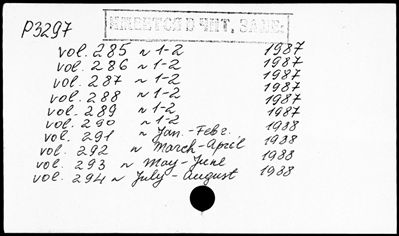 P3297
ИМЕЕТСЯ В ЧИТ. ЗАЛЕ
vol. 285 ~ 1-2 1987
vol. 286 ~ 1-2 1987
vol. 287 ~ 1-2 1987
vol. 288 ~ 1-2 1987
vol. 289 ~ 1-2 1987
vol. 290 ~ 1-2 1987
vol. 291 ~ Jan.-Febr. 1988
vol. 292 ~ March-April 1988
vol. 293 ~ May-June 1988
vol. 294 ~ July-August 1988